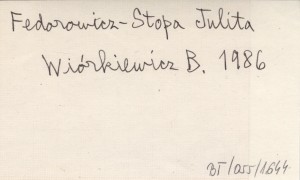 Fedorowicz-Stopa Julita
Wiórkiewicz B. 1986
BT/055/1644